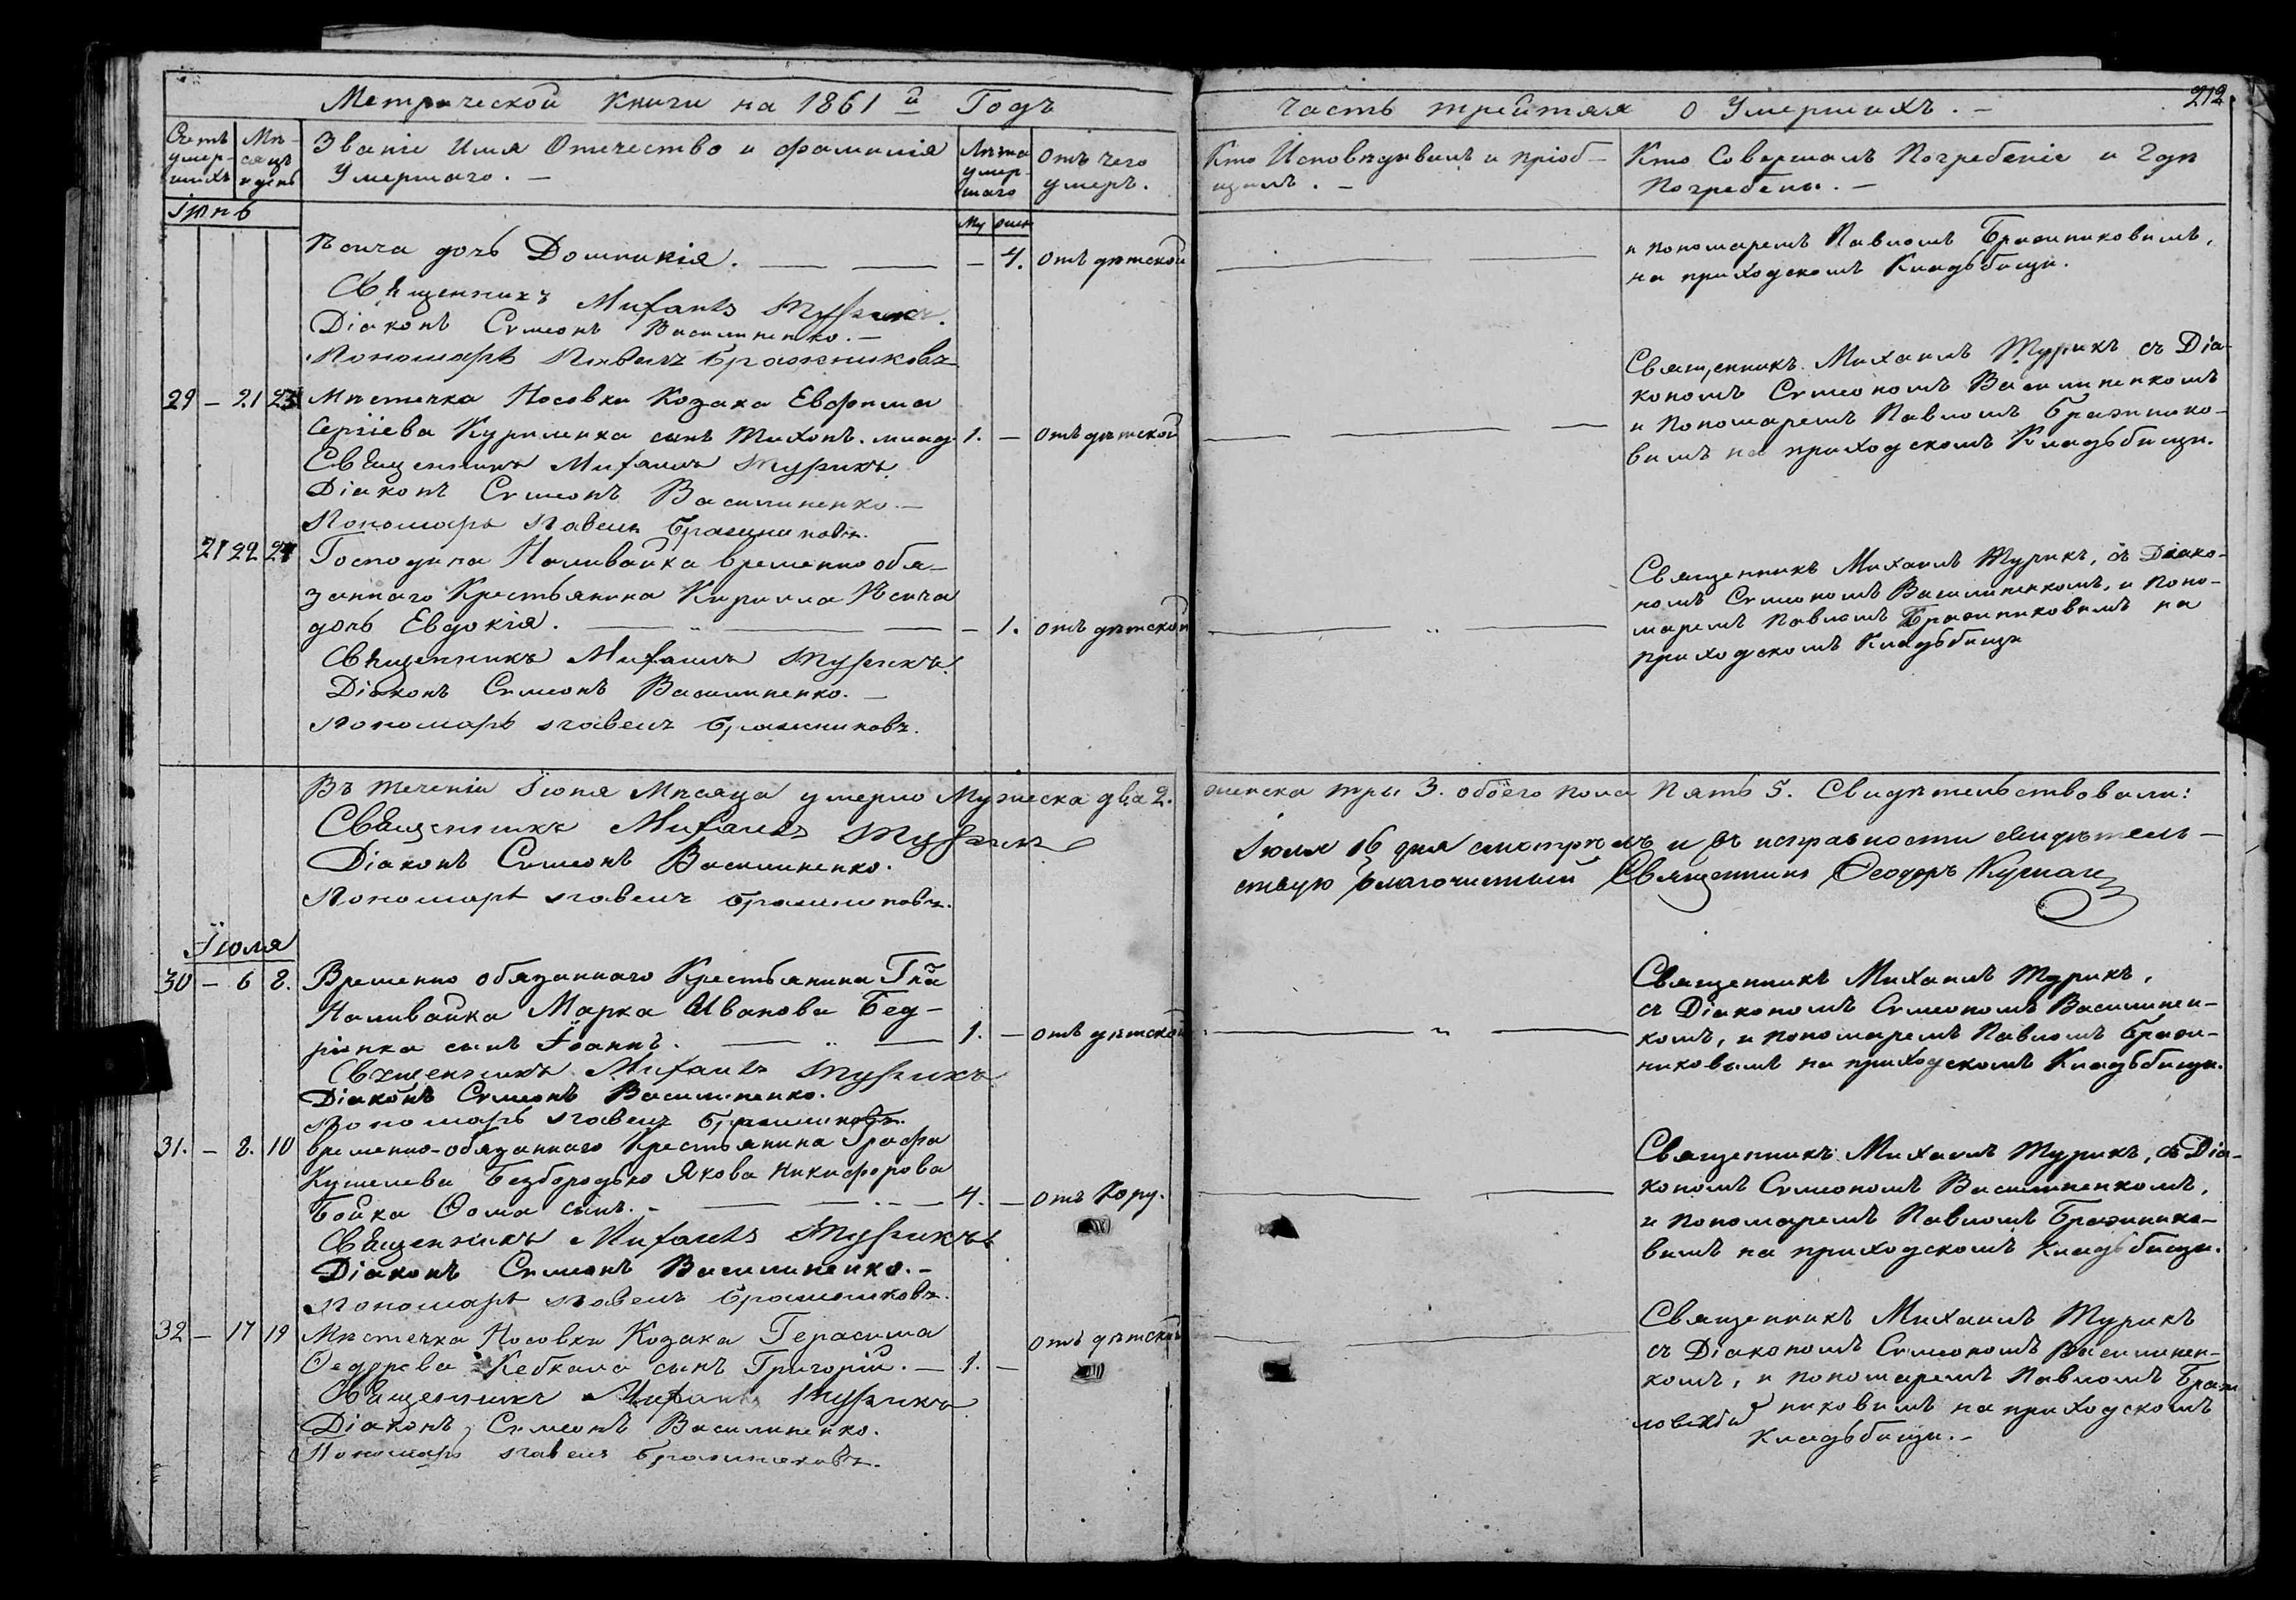 Метрической Книги на 1861й Годъ
Счетъ умер-шихъ
Мѣ-сяцъ и день
Званіе Имя Отечество и фамилія
Умершаго. —
Лѣта умер-шаго
Отъ чего
умеръ.
Іюнь
Му жен
Кеича дочь Домникія. — — — 4. отъ дѣтской
Священникъ Михаилъ Турикъ.
Діаконъ Симеонъ Василиненко. —
Пономарь Павелъ Бражниковъ
29 — 21 23 Мѣстечка Носовки Козака Евфима
Сергіева Куриленка сынъ Тихонъ. млад. 1. — отъ дѣтской
Священникъ Михаилъ Турикъ.
Діаконъ Симеонъ Василиненко. —
Пономарь Павелъ Бражниковъ.
21 22 24 Господина Наливайка временно обя-
заннаго Крестьянина Кирилла Кеича
дочь Евдокія. — — — 1. отъ дѣтской
Священникъ Михаилъ Турикъ.
Діаконъ Симеонъ Василиненко. —
Пономарь Павелъ Бражниковъ.
Въ теченіи Іюня Мѣсяца умерло Мужеска два 2.
Священникъ Михаилъ Турикъ
Діаконъ Симеонъ Василиненко.
Пономарь Павелъ Бражниковъ.
Іюля
30 — 6 8. Временно обязаннаго Крестьянина Гна
Наливайка Марка Иванова Бед-
ринка сынъ Іоаннъ. — — 1. — отъ дѣтской
Священникъ Михаилъ Турикъ
Діаконъ Симеонъ Василиненко.
Пономарь Павелъ Бражниковъ.
31. — 8. 10 временно-обязаннаго Крестьянина Графа
Кушелева Безбородько Якова Никифорова
Бойка Ѳома сынъ. — — — 4. — отъ Кору.
Священникъ Михаилъ Турикъ
Діаконъ Симеонъ Василиненко. —
Пономарь Павелъ Бражниковъ.
32 — 17 19 Мѣстечка Носовки Козака Герасима отъ дѣтской
Ѳедорова Кебкала сынъ Григорій. — 1. —
Священникъ Михаилъ Турикъ
Діаконъ Симеонъ Василиненко.
Пономарь Павелъ Бражниковъ.
Часть третяя о Умершихъ. —
212
Кто Исповѣдывалъ и пріоб-
щалъ. —
Кто Совершалъ Погребеніе и Гдѣ
Погребены. —
и пономаремъ Павломъ Бражниковымъ,
на приходскомъ Кладьбищи.
Священникъ Михаилъ Турикъ съ Діа-
кономъ Симеономъ Василиненкомъ
и Пономаремъ Павломъ Бражнико-
вымъ на приходскомъ Кладьбищи.
Священникъ Михаилъ Турикъ, съ Діако-
номъ Симеономъ Василиненкомъ, и Поно-
маремъ Павломъ Бражниковымъ на
приходскомъ Кладьбищи
женска три 3. обоего пола Пять 5. Свидѣтельствовали:
Іюля 16 дня смотрѣлъ и въ исправности свидѣтель-
ствую Благочинный Священникъ Ѳеодоръ
Священникъ Михаилъ Турикъ,
съ Діакономъ Симеономъ Василинен-
комъ, и пономаремъ Павломъ Браж-
никовымъ на приходскомъ Кладьбищи.
Священникъ Михаилъ Турикъ, съ Діа-
кономъ Симеономъ Василиненкомъ,
и Пономаремъ Павломъ Бражнико-
вымъ на приходскомъ кладьбищи.
Священникъ Михаилъ Турикъ
съ Діакономъ Симеономъ Василинен-
комъ, и пономаремъ Павломъ Браж
никовымъ на приходскомъ
Кладьбищи. —